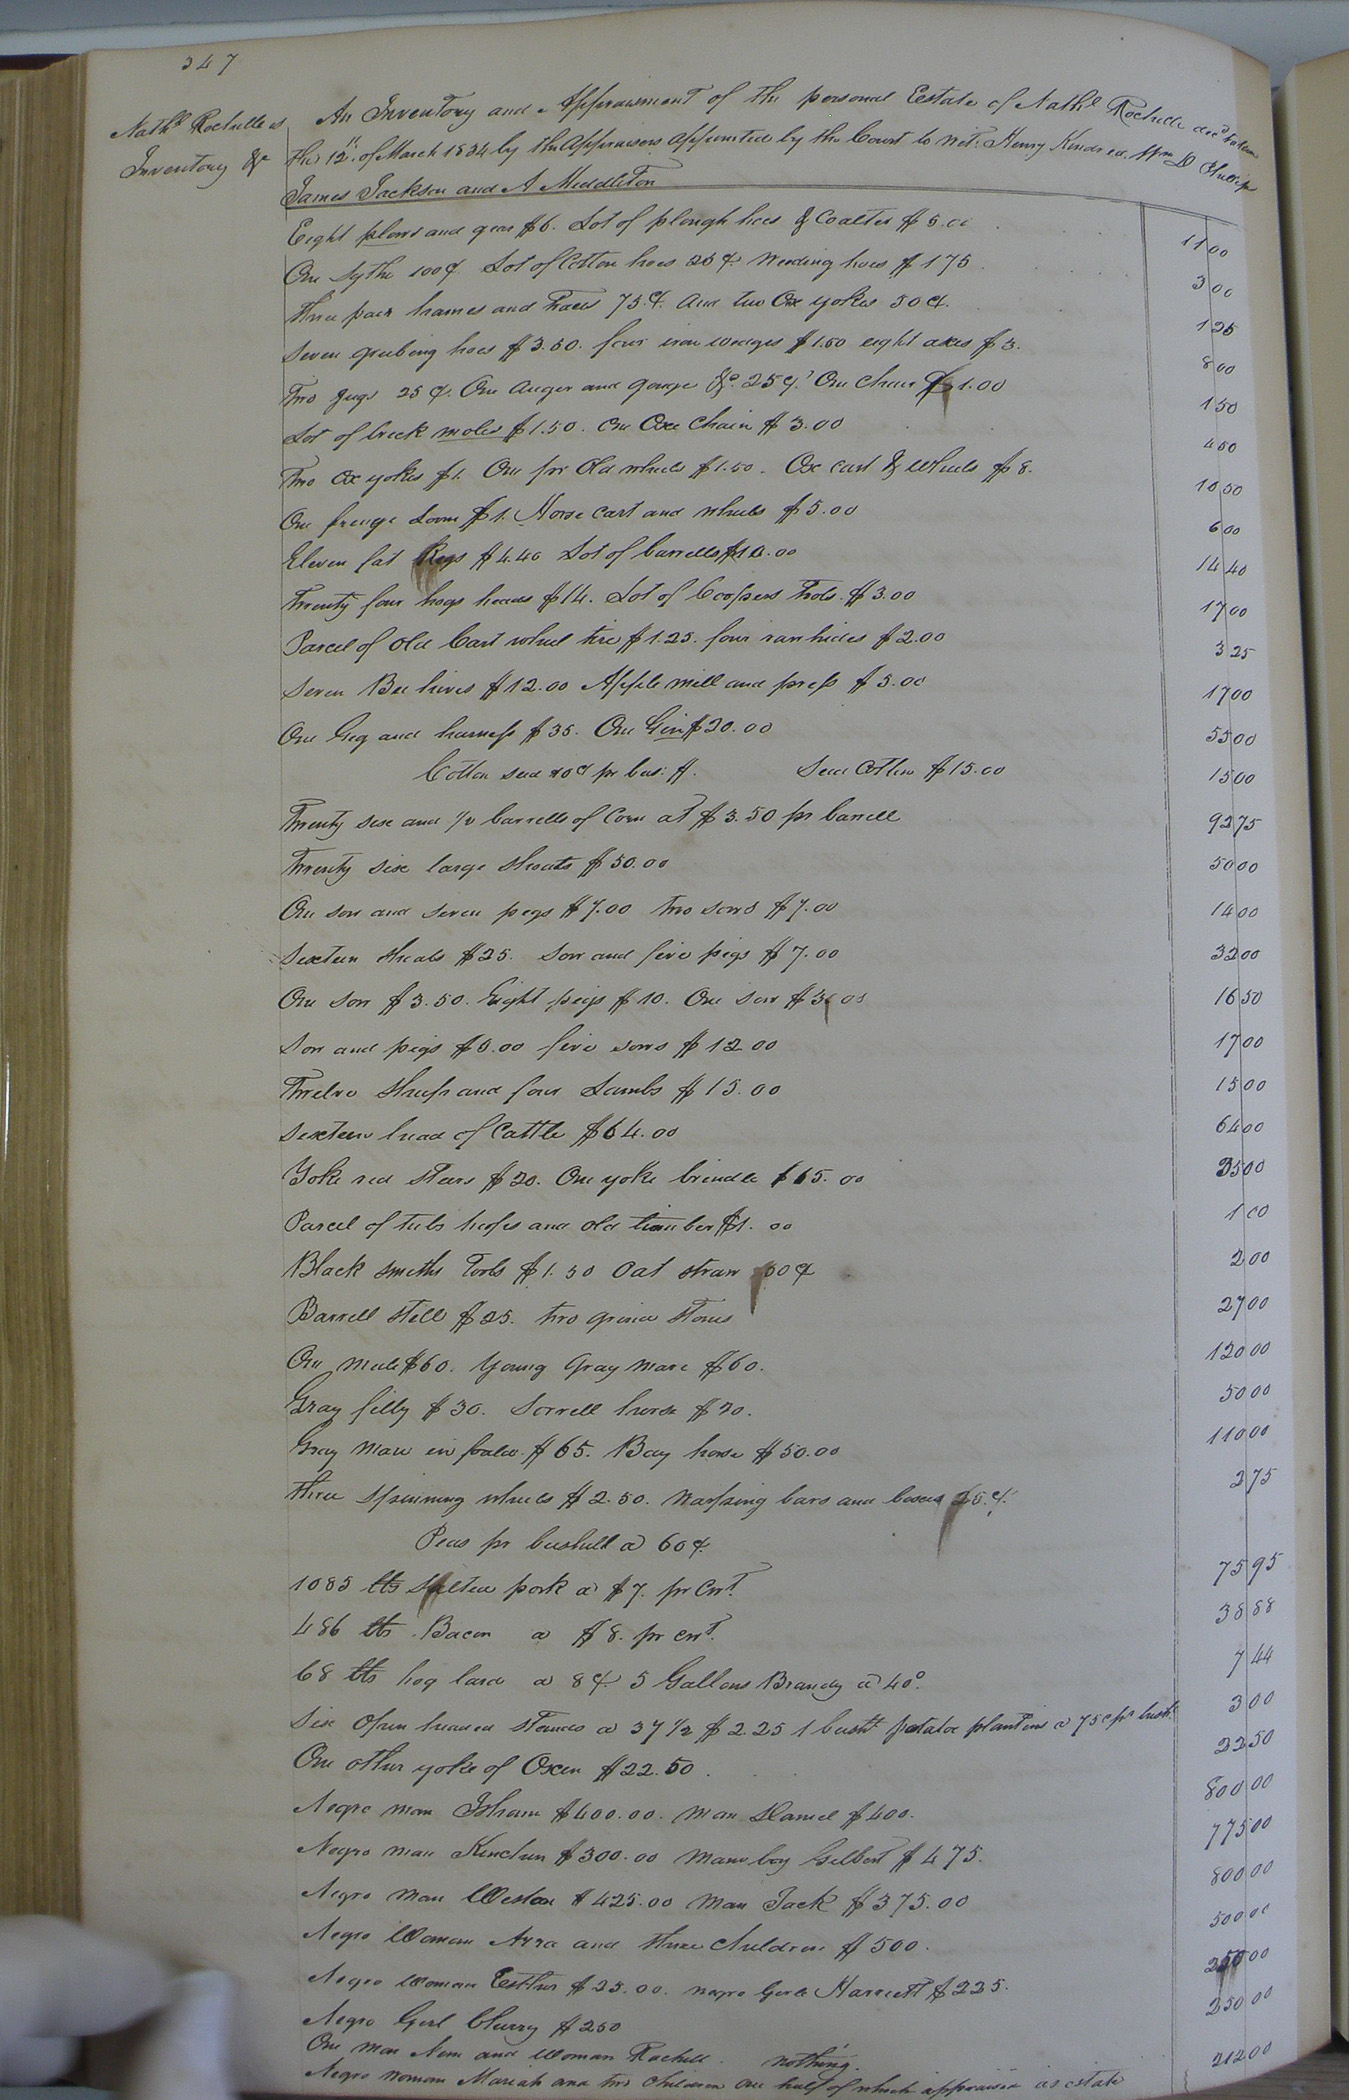 347
Nath.l Rochelle's
Inventory &c
An Inventory and Appraisment of the personal Estate of Nath.l Rochelle dec.d taken
this 12" of March 1834 by the Appraisers appointed by the Court to wit: Henry Kindred, Wm D
James Jackson and A Middleton
Eight plows and gear $6. Lot of plough hoes & Coalter $5.00 1100
One Sythe 100¢. Lot of Cotton hoes 25¢. Weeding hoes $175 300
Three pair hames and Traces 75.¢. and two Ox yokes 50¢. 125
Seven grubing hoes $3.50. four iron wedges $1.50 eight axes $3. 800
Two Jugs 25¢. One Auger and gouge &c. 25¢. One Chair $1.00 150
Lot of brick moles $1.50. One Oxe Chain $3.00 450
Two Ox yokes $1. One pr Old wheels $1.50. Ox cart & Wheels $8. 1050
One Loom $1. Horse Cart and wheels $5.00 600
Eleven fat $4.40 Lot of barrells $10.00 1440
Twenty four hogs heads $14. Lot of Coopers Tools. $3.00 1700
Parcel of Old Cart wheel tire $1.25. four raw hides $2.00 325
Seven Bee hives $12.00 Apple mill and press $5.00 1700
One Gig and harness $35. One Gin $20.00 5500
Cotton seed 10¢ pr bus: $. Seed Cotton $15.00 1500
Twenty six and 1/2 barrells of Corn at $3.50 pr barrell 9275
Twenty six large Shoats $50.00 5000
One sow and seven pigs $7.00 two sows $7.00 1400
Sixteen shoats $25. Sow and five pigs $7.00 3200
One Sow $3.50. Eight pigs $10. One sow $3.00 1650
Sow and pigs $5.00 five sows $12.00 1700
Twelve Sheep and four Lambs $15.00 1500
Sixteen head of Cattle $64.00 6400
Yoke red Stears $20. One yoke brindle $15.00 3500
Parcel of tubs hoops and old timber $1.00 100
Black smiths Tools $1.50 Oat straw 50¢ 200
Barrell Still $25. two grind stones 2700
One mule $60. Young Gray mare $60. 12000
Gray filly $30. Sorrell horse $20. 5000
Gray Mare in foal $65. Bay horse $50.00 11000
three Spinning wheels $2.50. Warping bars and boxes 25.¢. 275
Peas pr bushell a 60¢.
1085 lbs Salted pork a $7. pr Cwt. 7595
486 lbs. Bacon a $8. pr cwt. 3888
68 lbs hog lard a 8¢. 5 Gallons Brandy a 40c. 744
Six Open headed Stands a 37 1/2 $2.25 1 busht potatoe plantins a 75c pr bush. 300
One other yoke of Oxen $22.50. 2250
Negro man Isham $400.00. Man Daniel $400. 80000
Negro man Kinchen $300.00 Man boy Gilbert $475. 77500
Negro Man Weston $425.00 Man Jack $375.00 80000
Negro Woman Avra and three Children $500. 50000
Negro Woman Esther $25.00. negro Girl Harriett $225. 25000
Negro Girl Cherry $250 25000
One Man Nem and Woman Rachell. nothing.
Negro woman Mariah and two Children one half of which appraised as estate 21200